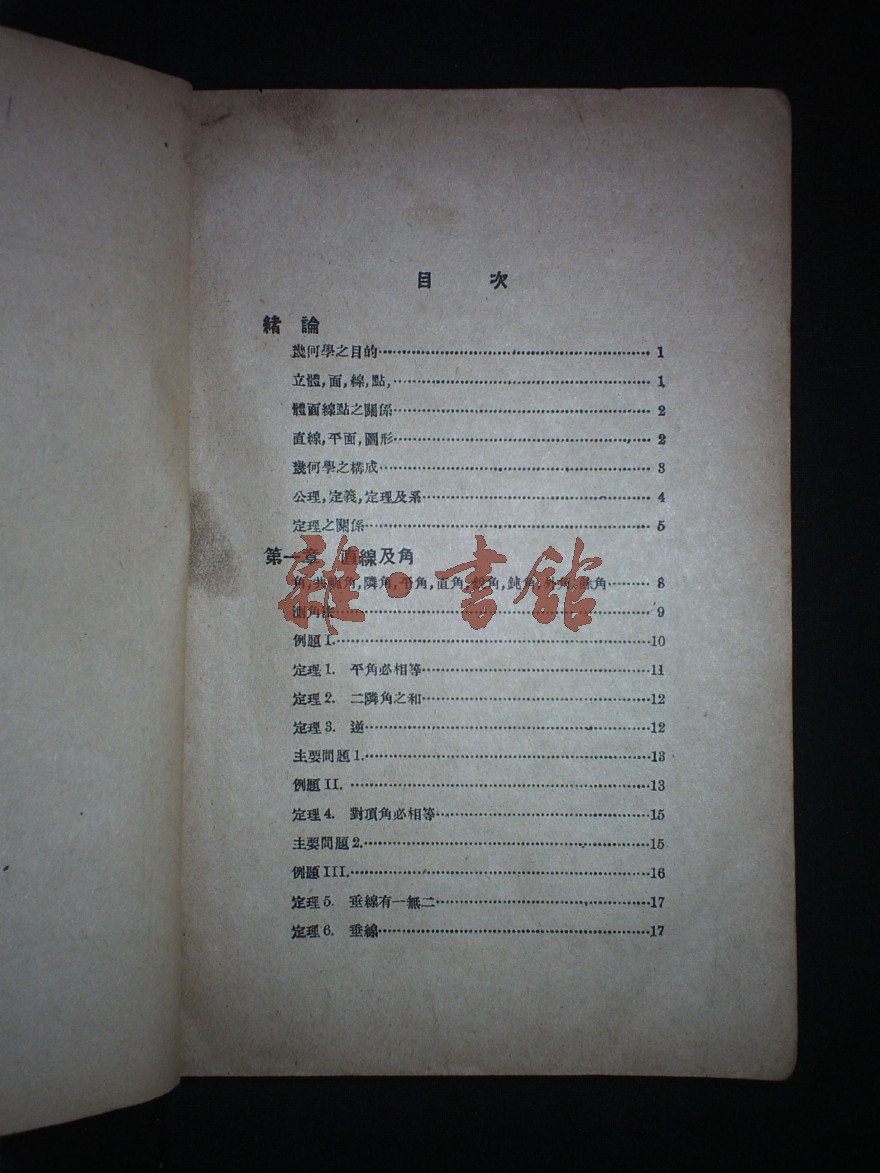 目 次
緒 論
幾何學之目的 1
立體,面,線,點, 1
體面線點之關係 2
直線,平面,圖形 2
幾何學之構成 3
公理,定義,定理及系 4
定理之關係 5
第一章 直線及角
角,共軛角,隣角,平角,直角,銳角,鈍角,外角,餘角 8
測角法 9
例題 I. 10
定理 1. 平角必相等 11
定理 2. 二隣角之和 12
定理 3. 逆 12
主要問題 1. 13
例題 II. 13
定理 4. 對頂角必相等 15
主要問題 2. 15
例題 III. 16
定理 5. 垂線有一無二 17
定理 6. 垂線 17
雜·書館